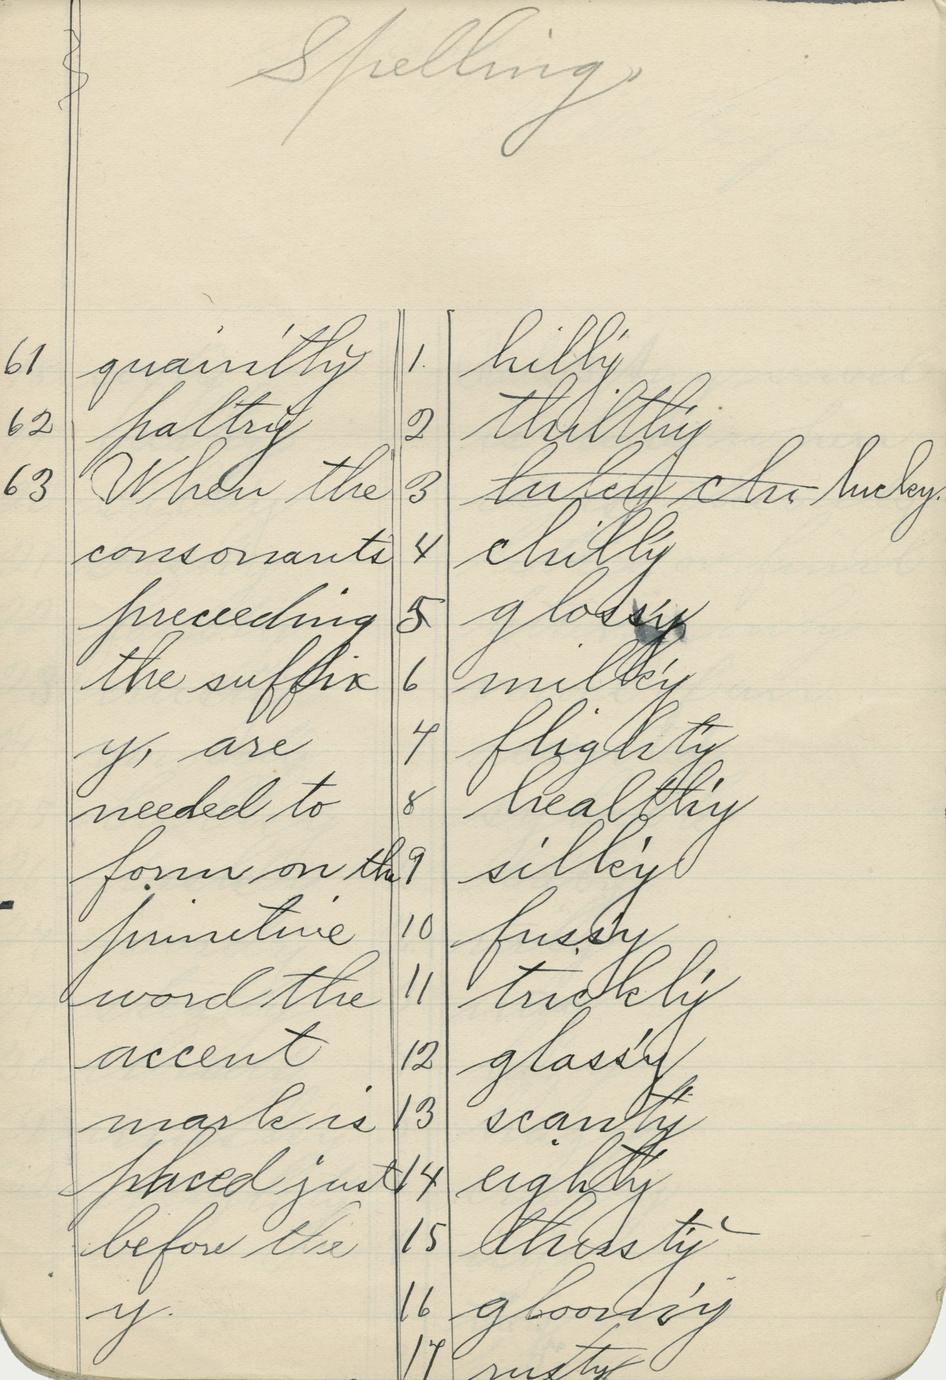 Spelling.
61 quaint'ly
62 paltry
63 When the
consonants
preceeding
the suffix
y, are
needed to
form on the
primitive
word the
accent
mark is
placed just
before the
y.
1. hill'y
2 thilth'y
3 lucky.
4 chill'y
5 gloss'y
6 milk'y
7 flight'y
8 health'y
9 silk'y
10 fuss'y
11 trickl'y
12 glass'y
13 scant'y
14 eight'y
15 thirst'y
16 gloom'y
17 rusty